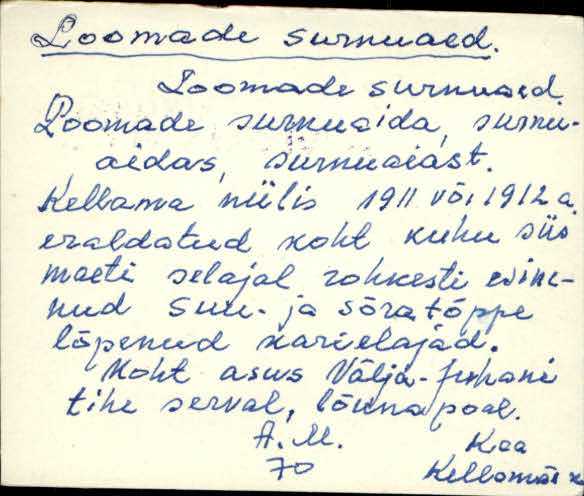 Loomade surnuaed.
Loomade surnuaed.
Loomade surnuaida, surnu-
aidas, surnuaiast.
Kellama niilis 1911 või 1912 a.
eraldatud koht kuhu siis
maeti selajal rohkesti esine-
nud suu- ja sõratõppe
lõpenud kariela­jad.
Koht asus Välja-Juhani
tihe serval, lõunapool.
A. M. Kaa
70 Kellamäe k